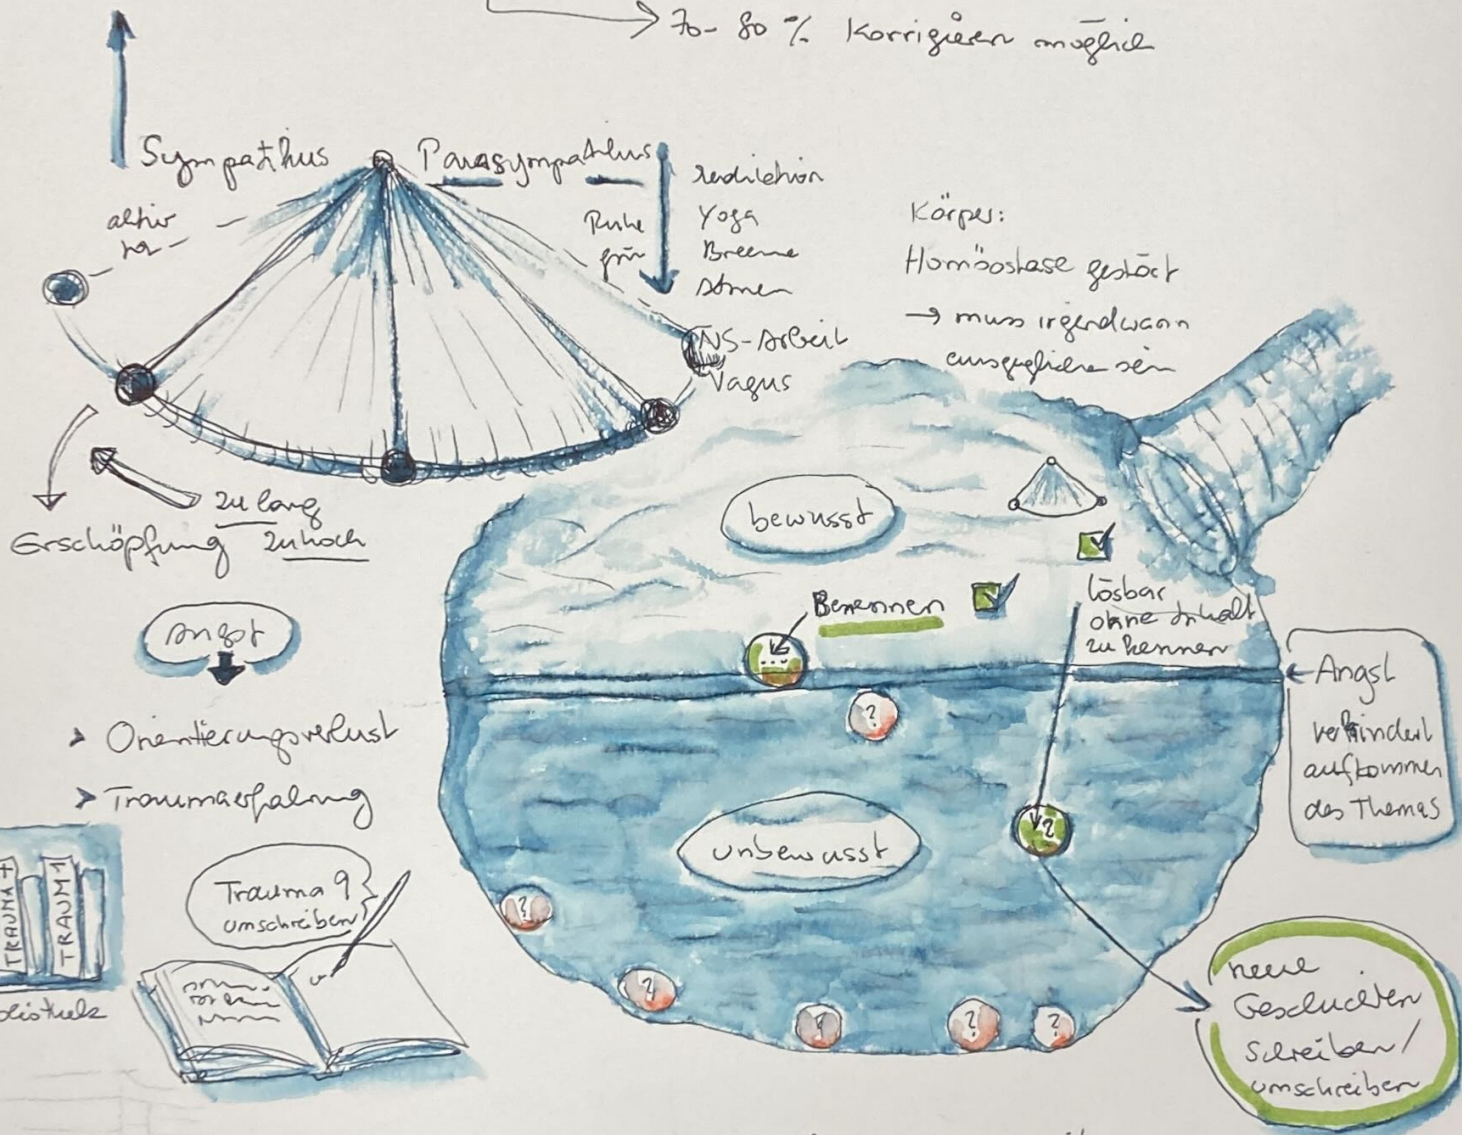 70-80 % Korrigieren möglich
Sympathikus
Parasympathikus
aktiv
Ruhe
Meditation
Yoga
Atmen
NS-Arbeit
Vagus
Körper:
Homöostase gestört
→ muss irgendwann
ausgeglichen sein
zu lang
zu hoch
Erschöpfung
Angst
> Orientierungsverlust
> Traumaerfahrung
TRAUMA
TRAUMA
Trauma
umschreiben
bewusst
Benennen
lösbar
ohne Inhalt
zu kennen
...
?
unbewusst
?
?
?
?
?
?
Angst
verhindert
aufkommen
des Themas
neue
Geschichten
schreiben/
umschreiben